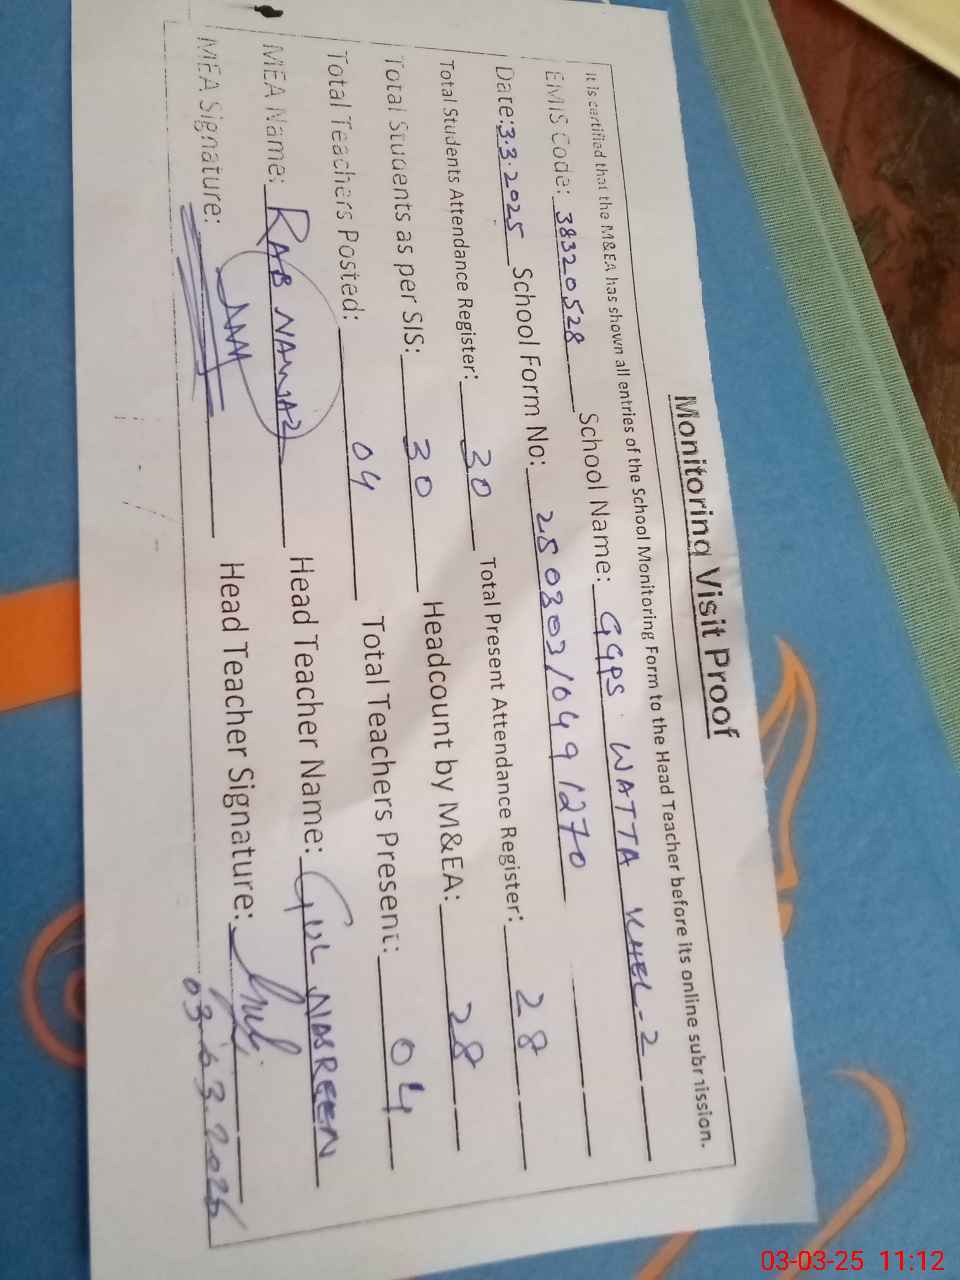 Monitoring Visit Proof
It is certified that the M&EA has shown all entries of the School Monitoring Form to the Head Teacher before its online submission.
EMIS Code: 38320528 School Name: GGPS WATTA KHEL-2
Date: 3.3.2025 School Form No: 250303/0491270
Total Students Attendance Register: 30 Total Present Attendance Register: 28
Total Students as per SIS: 30 Headcount by M&EA: 28
Total Teachers Posted: 04 Total Teachers Present: 04
MEA Name: RAB NAWAZ Head Teacher Name: GUL NASREEN
MEA Signature: Head Teacher Signature:
03-03-25 11:12